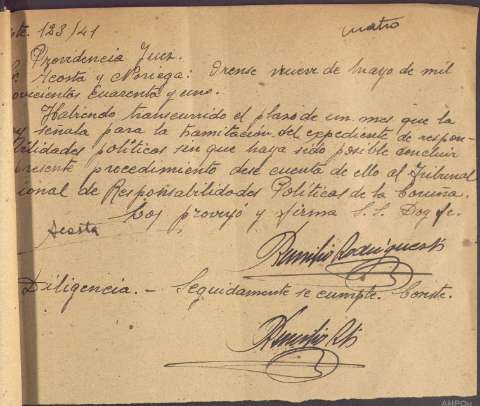 te. 123/41
cuatro
Providencia Juez.
Acosta y Noriega: Orense nueve de mayo de mil
ovecientos cuarenta y uno.
Habiendo transcurrido el plazo de un mes que la
señala para la tramitación del expediente de respon-
bilidades políticas sin que haya sido posible concluir
resente procedimiento dese cuenta de ello al Tribunal
ional de Responsabilidades Políticas de la Coruña.
Los proveyó y firma S.S. Doy fe.
Acosta
Remisio Rodriguez
Diligencia.- Seguidamente se cumple. Conste.
AHPOu